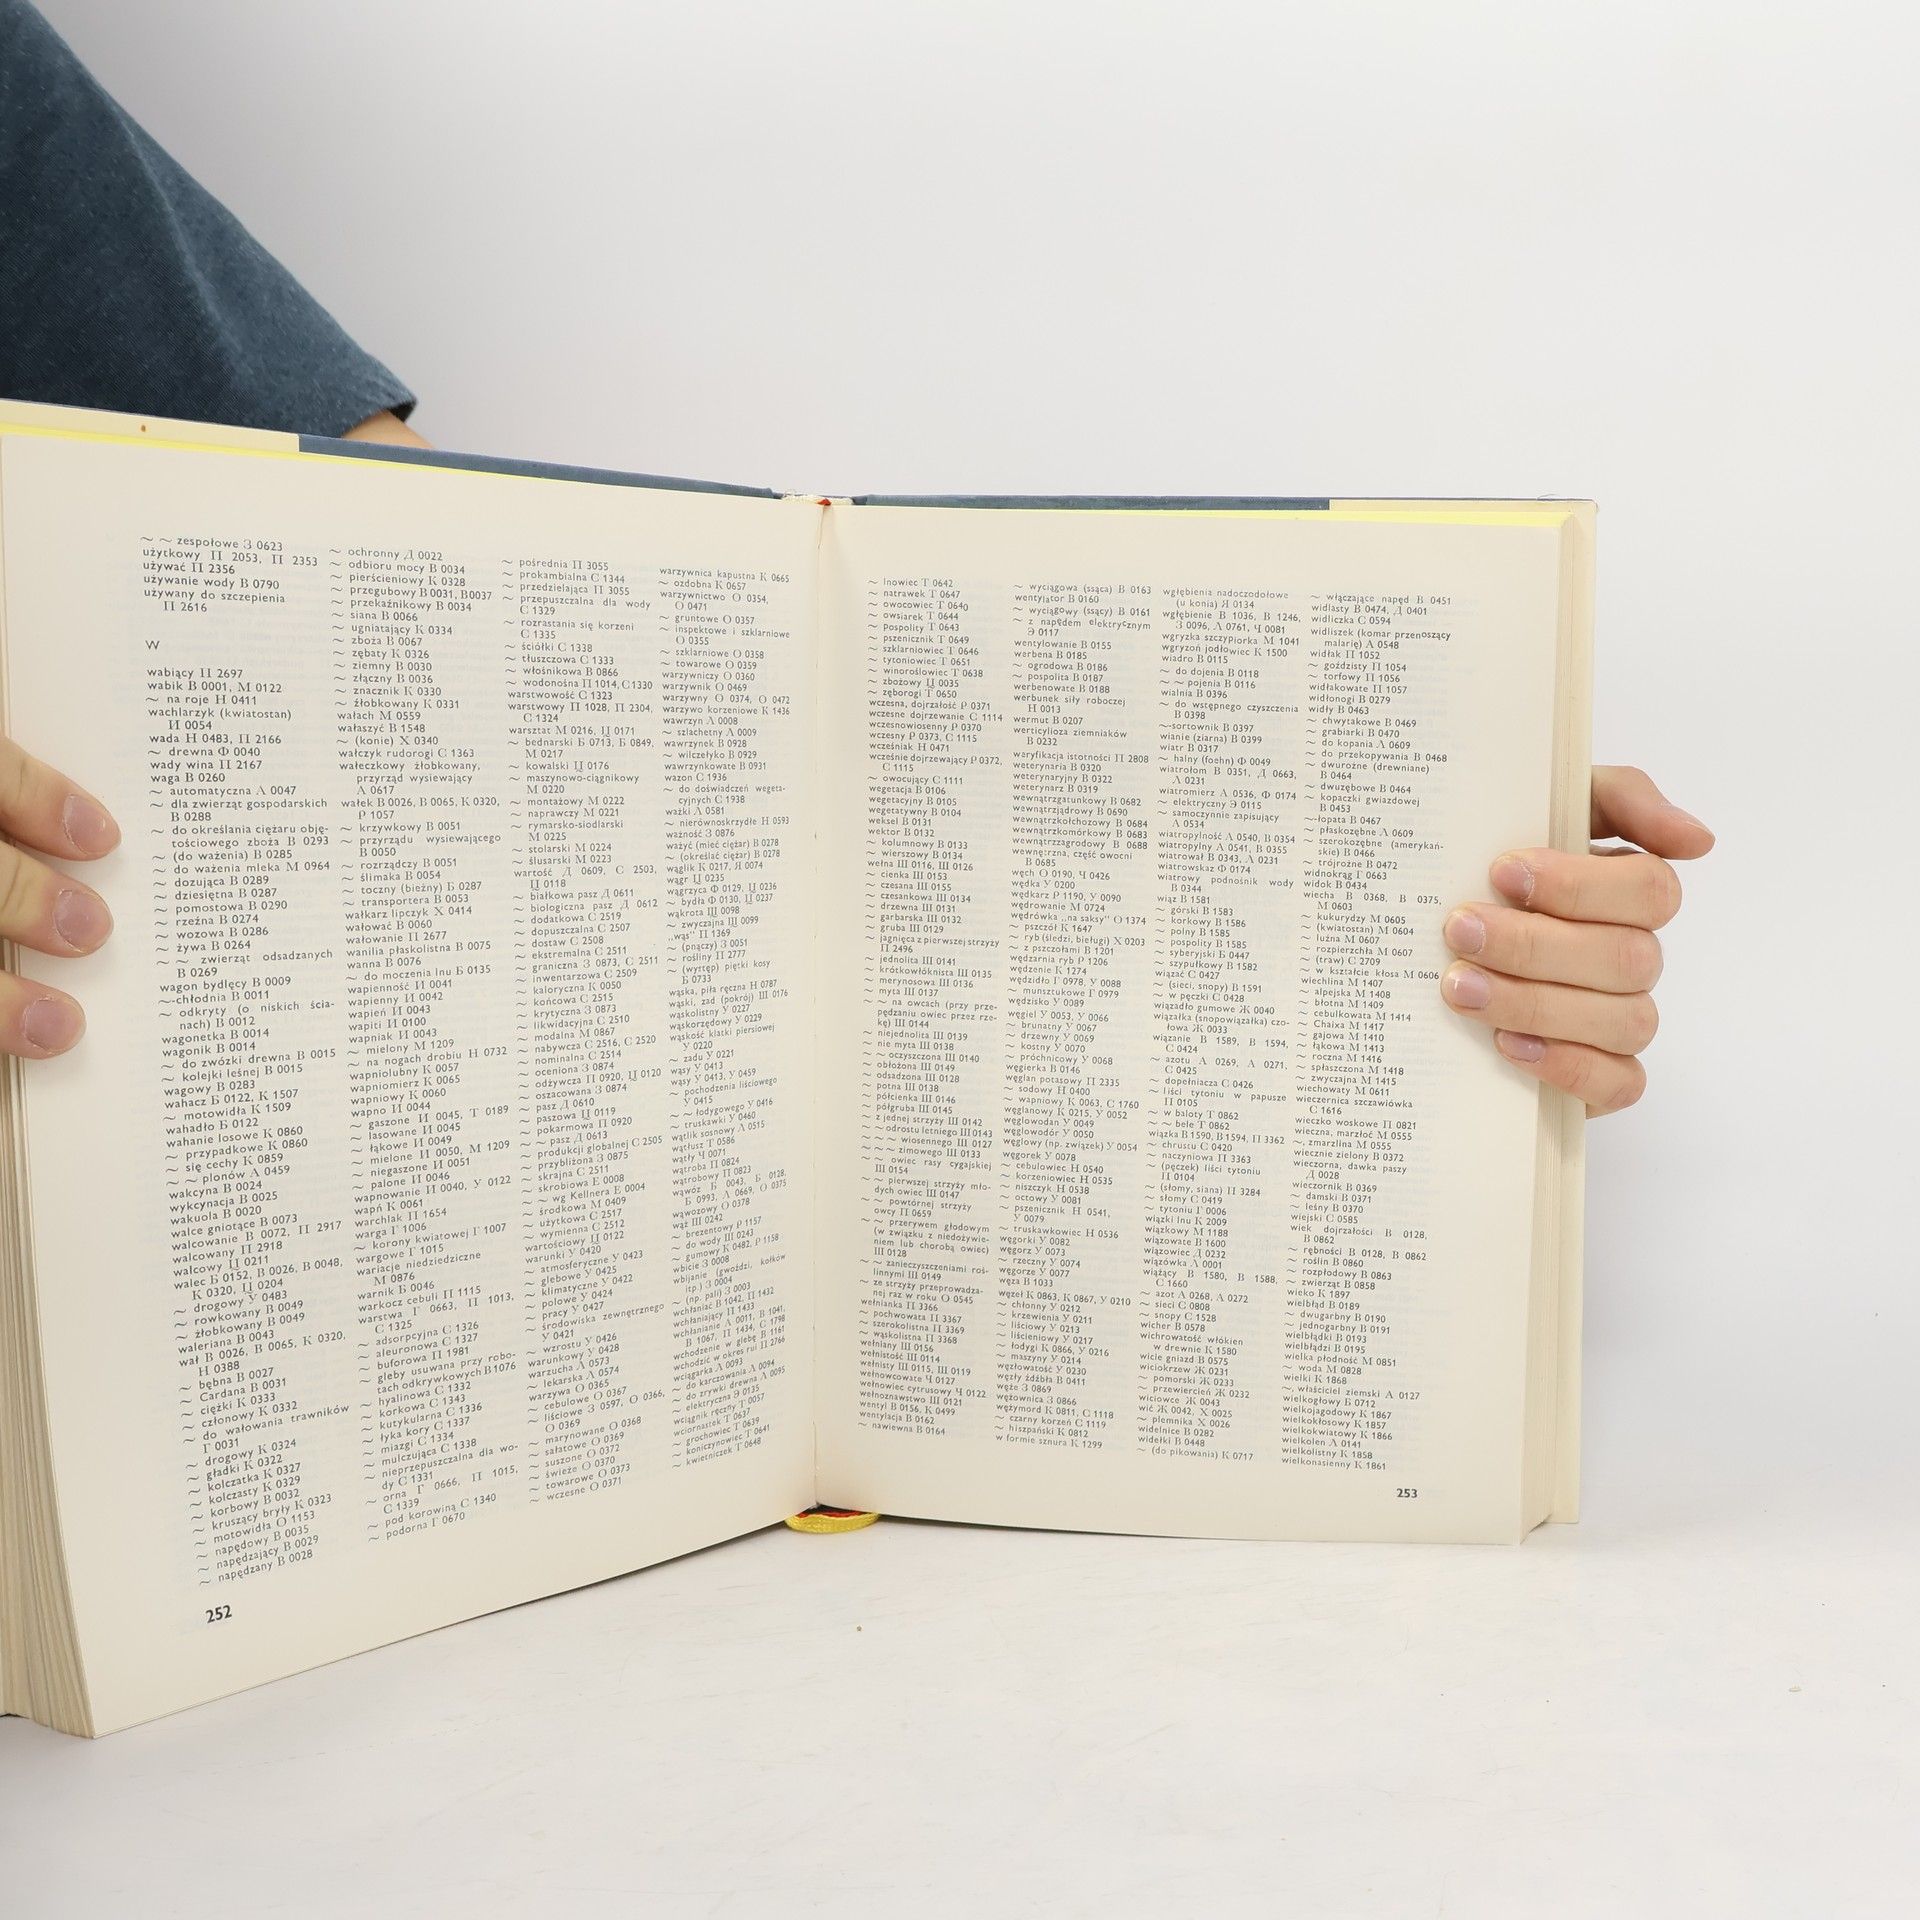 ~ ~ zespołowe З 0623
użytkowy П 2053, П 2353
używać П 2356
używanie wody В 0790
używany do szczepienia
П 2616
W
wabiący П 2697
wabik В 0001, М 0122
~ na roje Н 0411
wachlarzyk (kwiatostan)
И 0054
wada Н 0483, П 2166
~ drewna Ф 0040
wady wina П 2167
waga В 0260
~ automatyczna А 0047
~ dla zwierząt gospodarskich
В 0288
~ do określania ciężaru obję-
tościowego zboża В 0293
~ (do ważenia) В 0285
~ do ważenia mleka М 0964
~ dozująca В 0289
~ dziesiętna В 0287
~ pomostowa В 0290
~ rzeźna В 0274
~ wozowa В 0286
~ żywa В 0264
~ ~ zwierząt odsadzanych
В 0269
wagon bydlęcy В 0009
~-chłodnia В 0011
~ odkryty (o niskich ścia-
nach) В 0012
wagonetka В 0014
wagonik В 0014
~ do zwózki drewna В 0015
~ kolejki leśnej В 0015
wagowy В 0283
wahacz Б 0122, К 1507
~ motowidła К 1509
wahadło Б 0122
wahanie losowe К 0860
~ przypadkowe К 0860
~ się cechy К 0859
~ ~ plonów А 0459
wakcyna В 0024
wykcynacja В 0025
wakuola В 0020
walce gniotące В 0073
walcowanie В 0072, П 2917
walcowany П 2918
walcowy Ц 0211
walec Б 0152, В 0026, В 0048,
К 0320, Ц 0204
~ drogowy У 0483
~ rowkowany В 0049
~ żłobkowany В 0049
waleriana В 0043
wał В 0026, В 0065, К 0320,
Н 0388
~ bębna В 0027
~ Cardana В 0031
~ ciężki К 0333
~ członowy К 0332
~ do wałowania trawników
Г 0031
~ drogowy К 0324
~ gładki К 0322
~ kolczatka К 0327
~ kolczasty К 0329
~ korbowy В 0032
~ kruszący bryły К 0323
~ motowidła О 1153
~ napędowy В 0035
~ napędzający В 0029
~ napędzany В 0028
~ ochronny Д 0022
~ odbioru mocy В 0034
~ pierścieniowy К 0328
~ przegubowy В 0031, В0037
~ przekaźnikowy В 0034
~ siana В 0066
~ ugniatający К 0334
~ zboża В 0067
~ zębaty К 0326
~ ziemny В 0030
~ złączny В 0036
~ znacznik К 0330
~ żłobkowany К 0331
wałach М 0559
wałaszyć В 1548
~ (konie) Х 0340
wałczyk rudorogi С 1363
wałeczkowy żłobkowany,
przyrząd wysiewający
А 0617
wałek В 0026, В 0065, К 0320,
Р 1057
~ krzywkowy В 0051
~ przyrządu wysiewającego
В 0050
~ rozrządczy В 0051
~ ślimaka В 0054
~ toczny (bieżny) Б 0287
~ transportera В 0053
wałkarz lipczyk Х 0414
wałować В 0060
wałowanie П 2677
wanilia płaskolistna В 0075
wanna В 0076
~ do moczenia lnu Б 0135
wapienność И 0041
wapienny И 0042
wapień И 0043
wapiti И 0100
wapniak И 0043
~ mielony М 1209
~ na nogach drobiu Н 0732
wapniolubny К 0057
wapniomierz К 0065
wapniowy К 0060
wapno И 0044
~ gaszone И 0045, Т 0189
~ lasowane И 0045
~ łąkowe И 0049
~ mielone И 0050, М 1209
~ niegaszone И 0051
~ palone И 0046
wapnowanie И 0040, У 0122
wapń К 0061
warchlak П 1654
warga Г 1006
~ korony kwiatowej Г 1007
wargowe Г 1015
wariacje niedziedziczne
М 0876
warnik Б 0046
warkocz cebuli П 1115
warstwa Г 0663, П 1013,
С 1325
~ adsorpcyjna С 1326
~ aleuronowa С 1327
~ buforowa П 1981
~ gleby usuwana przy robo-
tach odkrywkowych В 1076
~ hyalinowa С 1332
~ korkowa С 1343
~ kutykularna С 1336
~ łyka kory С 1337
~ miazgi С 1334
~ mulczująca С 1338
~ nieprzepuszczalna dla wo-
dy С 1331
~ orna Г 0666, П 1015,
С 1339
~ pod korowiną С 1340
~ podorna Г 0670
~ pośrednia П 3055
~ prokambialna С 1344
~ przedzielająca П 3055
~ przepuszczalna dla wody
С 1329
~ rozrastania się korzeni
С 1335
~ ściółki С 1338
~ tłuszczowa С 1333
~ włośnikowa В 0866
~ wodonośna П 1014, С 1330
warstwowość С 1323
warstwowy П 1028, П 2304,
С 1324
warsztat М 0216, Ц 0171
~ bednarski Б 0713, Б 0849,
М 0217
~ kowalski Ц 0176
~ maszynowo-ciągnikowy
М 0220
~ montażowy М 0222
~ naprawczy М 0221
~ rymarsko-siodlarski
М 0225
~ stolarski М 0224
~ ślusarski М 0223
wartość Д 0609, С 2503,
Ц 0118
~ białkowa pasz Д 0611
~ biologiczna pasz Д 0612
~ dodatkowa С 2519
~ dopuszczalna С 2507
~ dostaw С 2508
~ ekstremalna С 2511
~ graniczna З 0873, С 2511
~ inwentarzowa С 2509
~ kaloryczna К 0050
~ końcowa С 2515
~ krytyczna З 0873
~ likwidacyjna С 2510
~ modalna М 0867
~ nabywcza С 2516, С 2520
~ nominalna С 2514
~ oceniona З 0874
~ odżywcza П 0920, Ц 0120
~ oszacowana З 0874
~ pasz Д 0610
~ paszowa Ц 0119
~ pokarmowa П 0920
~ ~ pasz Д 0613
~ produkcji globalnej С 2505
~ przybliżona З 0875
~ skrajna С 2511
~ skrobiowa Е 0008
~ ~ wg Kellnera Е 0004
~ środkowa М 0409
~ użytkowa С 2517
~ wymienna С 2512
wartościowy Ц 0122
warunki У 0420
~ atmosferyczne У 0423
~ glebowe У 0425
~ klimatyczne У 0422
~ polowe У 0424
~ pracy У 0427
~ środowiska zewnętrznego
У 0421
~ wzrostu У 0426
warunkowy У 0428
warzucha Л 0573
~ lekarska Л 0574
warzywa О 0365
~ cebulowe О 0367
~ liściowe З 0597, О 0366,
О 0369
~ marynowane О 0368
~ sałatowe О 0369
~ suszone О 0372
~ świeże О 0370
~ towarowe О 0373
~ wczesne О 0371
warzywnica kapustna К 0665
~ ozdobna К 0657
warzywnictwo О 0354,
О 0471
~ gruntowe О 0357
~ inspektowe i szklarniowe
О 0355
~ szklarniowe О 0358
~ towarowe О 0359
warzywniczy О 0360
warzywnik О 0469
warzywny О 0374, О 0472
warzywo korzeniowe К 1436
wawrzyn Л 0008
~ szlachetny Л 0009
wawrzynek В 0928
~ wilczełyko В 0929
wawrzynkowate В 0931
wazon С 1936
~ do doświadczeń wegeta-
cyjnych С 1938
ważki Л 0581
~ nierównoskrzydłe Н 0593
ważność З 0876
ważyć (mieć ciężar) В 0278
~ (określać ciężar) В 0278
wąglik К 0217, Я 0074
wągr Ц 0235
wągrzyca Ф 0129, Ц 0236
~ bydła Ф 0130, Ц 0237
wąkrota Щ 0098
~ zwyczajna Щ 0099
„wąs” П 1369
~ (pnączy) З 0051
~ rośliny П 2777
~ (występ) piętki kosy
Б 0733
wąska, piła ręczna Н 0787
wąski, zad (pokrój) Ш 0176
wąskolistny У 0227
wąskorzędowy У 0229
wąskość klatki piersiowej
У 0220
~ zadu У 0221
wąsy У 0413
wąsy У 0413, У 0459
~ pochodzenia liściowego
У 0415
~ ~ łodygowego У 0416
~ truskawki У 0460
wątlik sosnowy Л 0515
wątłusz Т 0586
wątły Ч 0071
wątroba П 0824
wątrobowy П 0823
wąwóz Б 0043, Б 0128,
Б 0993, Л 0669, О 0375
wąwozowy О 0378
wąż Ш 0242
~ brezentowy Р 1157
~ do wody Ш 0243
~ gumowy К 0482, Р 1158
wbicie З 0008
wbijanie (gwoździ, kołków
itp.) З 0004
~ (np. pali) З 0003
wchłaniać В 1042, П 1432
wchłaniający П 1433
wchłanianie А 0011, В 1041,
В 1067, П 1434, С 1798
wchodzenie w glebę В 1161
wchodzić w okres rui П 2766
wciągarka Л 0093
~ do karczowania Л 0094
~ do zrywki drewna Л 0095
~ elektryczna Э 0135
wciągnik ręczny Т 0057
wciornastek Т 0637
~ grochowiec Т 0639
~ koniczynowiec Т 0641
~ kwietniczek Т 0648
252
~ lnowiec Т 0642
~ natrawek Т 0647
~ owocowiec Т 0640
~ owsiarek Т 0644
~ pospolity Т 0643
~ pszenicznik Т 0649
~ szklarniowiec Т 0646
~ tytoniowiec Т 0651
~ winoroślowiec Т 0638
~ zbożowy Ц 0035
~ zęborogi Т 0650
wczesna, dojrzałość Р 0371
wczesne dojrzewanie С 1114
wczesnowiosenny Р 0370
wczesny Р 0373, С 1115
wcześniak Н 0471
wcześnie dojrzewający Р 0372,
С 1115
~ owocujący С 1111
wegetacja В 0106
wegetacyjny В 0105
wegetatywny В 0104
weksel В 0131
wektor В 0132
~ kolumnowy В 0133
~ wierszowy В 0134
wełna Ш 0116, Ш 0126
~ cienka Ш 0153
~ czesana Ш 0155
~ czesankowa Ш 0134
~ drzewna Ш 0131
~ garbarska Ш 0132
~ gruba Ш 0129
~ jagnięca z pierwszej strzyży
П 2496
~ jednolita Ш 0141
~ krótkowłóknista Ш 0135
~ merynosowa Ш 0136
~ myta Ш 0137
~ ~ na owcach (przy prze-
pędzaniu owiec przez rze-
kę) Ш 0144
~ niejednolita Ш 0139
~ nie myta Ш 0138
~ ~ oczyszczona Ш 0140
~ obłożona Ш 0149
~ odsadzona Ш 0128
~ potna Ш 0138
~ półcienka Ш 0146
~ półgruba Ш 0145
~ z jednej strzyży Ш 0142
~ ~ odrostu letniego Ш 0143
~ ~ ~ wiosennego Ш 0127
~ ~ ~ zimowego Ш 0133
~ ~ owiec rasy cygajskiej
Ш 0154
~ ~ pierwszej strzyży mło-
dych owiec Ш 0147
~ ~ powtórnej strzyży
owcy П 0659
~ ~ przerywem głodowym
(w związku z niedożywie-
niem lub chorobą owiec)
Ш 0128
~ ~ zanieczyszczeniami roś-
linnymi Ш 0149
~ ze strzyży przeprowadza-
nej raz w roku О 0545
wełnianka П 3366
~ pochwowata П 3367
~ szerokolistna П 3369
~ wąskolistna П 3368
wełniany Ш 0156
wełnistość Ш 0114
wełnisty Ш 0115, Ш 0119
wełnowcowate Ч 0127
wełnowiec cytrusowy Ч 0122
wełnoznawstwo Ш 0121
wentyl В 0156, К 0499
wentylacja В 0162
~ nawiewna В 0164
~ wyciągowa (ssąca) В 0163
wentylator В 0160
~ wyciągowy (ssący) В 0161
~ z napędem elektrycznym
Э 0117
wentylowanie В 0155
werbena В 0185
~ ogrodowa В 0186
~ pospolita В 0187
werbenowate В 0188
werbunek siły roboczej
Н 0013
wermut В 0207
werticylioza ziemniaków
В 0232
weryfikacja istotności П 2808
weterynaria В 0320
weterynaryjny В 0322
weterynarz В 0319
wewnątrzgatunkowy В 0682
wewnątrzjądrowy В 0690
wewnątrzkołchozowy В 0684
wewnątrzkomórkowy В 0683
wewnątrzzagrodowy В 0688
wewnętrzna, część owocni
В 0685
węch О 0190, Ч 0426
wędka У 0200
wędkarz Р 1190, У 0090
wędrowanie М 0724
wędrówka „na saksy” О 1374
~ pszczół К 1647
~ ryb (śledzi, bieługi) Х 0203
~ z pszczołami В 1201
wędzarnia ryb Р 1206
wędzenie К 1274
wędzidło Г 0978, У 0088
~ munsztukowe Г 0979
wędzisko У 0089
węgiel У 0053, У 0066
~ brunatny У 0067
~ drzewny У 0069
~ kostny У 0070
~ próchnicowy У 0068
węgierka В 0146
węglan potasowy П 2335
~ sodowy Н 0400
~ wapniowy К 0063, С 1760
węglanowy К 0215, У 0052
węglowodan У 0049
węglowodór У 0050
węglowy (np. związek) У 0054
węgorek У 0078
~ cebulowiec Н 0540
~ korzeniowiec Н 0535
~ niszczyk Н 0538
~ octowy У 0081
~ pszenicznik Н 0541,
У 0079
~ truskawkowiec Н 0536
węgorki У 0082
węgorz У 0073
~ rzeczny У 0074
węgorze У 0077
węza В 1033
węzeł К 0863, К 0867, У 0210
~ chłonny У 0212
~ krzewienia У 0211
~ liściowy У 0213
~ liścieniowy У 0217
~ łodygi К 0866, У 0216
~ maszyny У 0214
węzłowatość У 0230
węzły źdźbła В 0411
węże З 0869
wężownica З 0866
wężymord К 0811, С 1118
~ czarny korzeń С 1119
~ hiszpański К 0812
w formie sznura К 1299
wgłębienia nadoczodołowe
(u konia) Я 0134
wgłębienie В 1036, В 1246,
З 0096, Л 0761, Ч 0081
wgryzka szczypiorka М 1041
wgryzoń jodłowiec К 1500
wiadro В 0115
~ do dojenia В 0118
~ ~ pojenia В 0116
wialnia В 0396
~ do wstępnego czyszczenia
В 0398
~-sortownik В 0397
wianie (ziarna) В 0399
wiatr В 0317
~ halny (foehn) Ф 0049
wiatrołom В 0351, Д 0663,
Л 0231
wiatromierz А 0536, Ф 0174
~ elektryczny Э 0115
~ samoczynnie zapisujący
А 0534
wiatropylność А 0540, В 0354
wiatropylny А 0541, В 0355
wiatrował В 0343, Л 0231
wiatrowskaz Ф 0174
wiatrowy podnośnik wody
В 0344
wiąz В 1581
~ górski В 1583
~ korkowy В 1586
~ polny В 1585
~ pospolity В 1585
~ syberyjski Б 0447
~ szypułkowy В 1582
wiązać С 0427
~ (sieci, snopy) В 1591
~ w pęczki С 0428
wiązadło gumowe Ж 0040
wiązałka (snopowiązałka) czo-
łowa Ж 0033
wiązanie В 1589, В 1594,
С 0424
~ azotu А 0269, А 0271,
С 0425
~ dopełniacza С 0426
~ liści tytoniu w papusze
П 0105
~ w baloty Т 0862
~ ~ bele Т 0862
wiązka В 1590, В 1594, П 3362
~ chrustu С 0420
~ naczyniowa П 3363
~ (pęczek) liści tytoniu
П 0104
~ (słomy, siana) П 3284
~ słomy С 0419
~ tytoniu Г 0006
wiązki lnu К 2009
wiązkowy М 1188
wiązowate В 1600
wiązowiec Д 0232
wiązówka Л 0001
wiążący В 1580, В 1588,
С 1660
~ azot А 0268, А 0272
~ sieci С 0808
~ snopy С 1528
wicher В 0578
wichrowatość włókien
w drewnie К 1580
wicie gniazd В 0575
wiciokrzew Ж 0231
~ pomorski Ж 0233
~ przewiercień Ж 0232
wiciowce Ж 0043
wić Ж 0042, Х 0025
~ plemnika Х 0026
widelnice В 0282
widełki В 0448
~ (do pikowania) К 0717
~ włączające napęd В 0451
widlasty В 0474, Д 0401
widliczka С 0594
widliszek (komar przenoszący
malarię) А 0548
widłak П 1052
~ goździsty П 1054
~ torfowy П 1056
widłakowate П 1057
widłonogi В 0279
widły В 0463
~ chwytakowe В 0469
~ grabiarki В 0470
~ do kopania Л 0609
~ do przekopywania В 0468
~ dwurożne (drewniane)
В 0464
~ dwuzębowe В 0464
~ kopaczki gwiazdowej
В 0453
~-łopata В 0467
~ płaskozębne Л 0609
~ szerokozębne (amerykań-
skie) В 0466
~ trójrożne В 0472
widnokrąg Г 0663
widok В 0434
wiecha В 0368, В 0375,
М 0603
~ kukurydzy М 0605
~ (kwiatostan) М 0604
~ luźna М 0607
~ rozpierzchła М 0607
~ (traw) С 2709
~ w kształcie kłosa М 0606
wiechlina М 1407
~ alpejska М 1408
~ błotna М 1409
~ cebulkowata М 1414
~ Chaixa М 1417
~ gajowa М 1410
~ łąkowa М 1413
~ roczna М 1416
~ spłaszczona М 1418
~ zwyczajna М 1415
wiechowaty М 0611
wieczernica szczawiówka
С 1616
wieczko woskowe П 0821
wieczna, marzłoć М 0555
~, zmarzlina М 0555
wiecznie zielony В 0372
wieczorna, dawka paszy
Д 0028
wieczornik В 0369
~ damski В 0371
~ leśny В 0370
wiejski С 0585
wiek dojrzałości В 0128,
В 0862
~ rębności В 0128, В 0862
~ roślin В 0860
~ rozpłodowy В 0863
~ zwierząt В 0858
wieko К 1897
wielbłąd В 0189
~ dwugarbny В 0190
~ jednogarbny В 0191
wielbłądki В 0193
wielbłądzi В 0195
wielka płodność М 0851
~ woda М 0828
wielki К 1868
~, właściciel ziemski Л 0127
wielkogłowy Б 0712
wielkojagodowy К 1867
wielkokłosowy К 1857
wielkokwiatowy К 1866
wielkolen Л 0141
wielkolistny К 1858
wielkonasienny К 1861
253